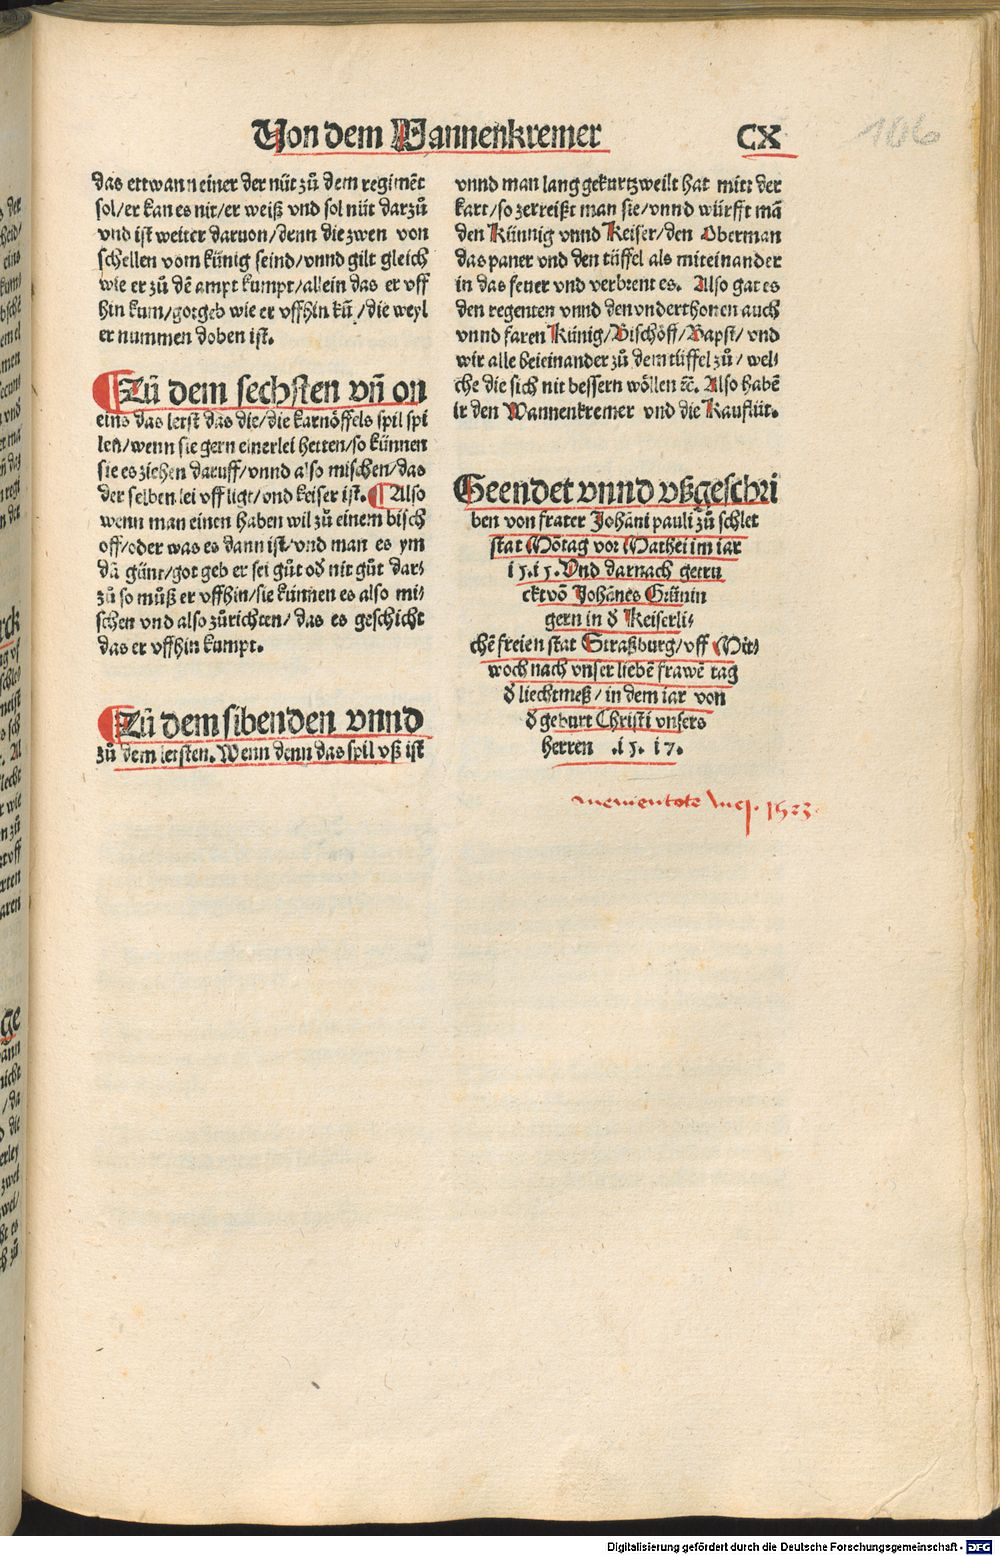 Von dem Wannenkremer CX
106
das ettwann einer der nüt zů dem regimēt
sol/er kan es nit/er weiß vnd sol nüt darzů
vnd ist weiter daruon/denn die zwen von
schellen vom künig seind/vnnd gilt gleich
wie er zů dē ampt kumpt/allein das er vff
hin kum/got geb wie er vffhin kū/die weyl
er nummen doben ist.
¶Zů dem sechsten vn̄ on
eins das letst das die/die karnöffels spil spi
len/wenn sie gern einerlei hetten/so künnen
sie es ziehen daruff/vnnd also mischen/das
der selben lei vff ligt/vnd keiser ist. ¶Also
wenn man einen haben wil zů einem bisch
off/oder was es dann ist/vnd man es ym
dā günt/got geb er sei gůt oď nit gůt dar/
zů so můß er vffhin/sie künnen es also mi/
schen vnd also zůrichten/das es geschicht
das er vffhin kumpt.
¶Zů dem sibenden vnnd
zů dem letsten. Wenn denn das spil vß ist
vnnd man lang gekurtzweilt hat mitt der
kart/so zerreißt man sie/vnnd würfft mā
den Künnig vnnd Keiser/den Oberman
das paner vnd den tüffel als miteinander
in das feuer vnd verbrent es. Also gat es
den regenten vnnd den vnderthonen auch
vnnd faren Künig/Bischöff/Bapst/vnd
wir alle beieinander zů dem tüffel zů/wel/
che die sich nit bessern wöllen ⁊c̄. Also habē
ir den Wannenkremer vnd die Kauflüt.
Geendet vnnd vßgeschri
ben von frater Johāni pauli zů schlet
stat Mōtag vor Mathei im iar
i5.i5. Vnd darnach getru
ckt vō Johānes Grünin
gern in ď Keiserli/
chē freien stat Straßburg/vff Mit/
woch nach vnser liebē frawē tag
ď liechtmeß/in dem iar von
ď geburt Christi vnsers
herren .i5.i7.
1523.
Digitalisierung gefördert durch die Deutsche Forschungsgemeinschaft - DFG